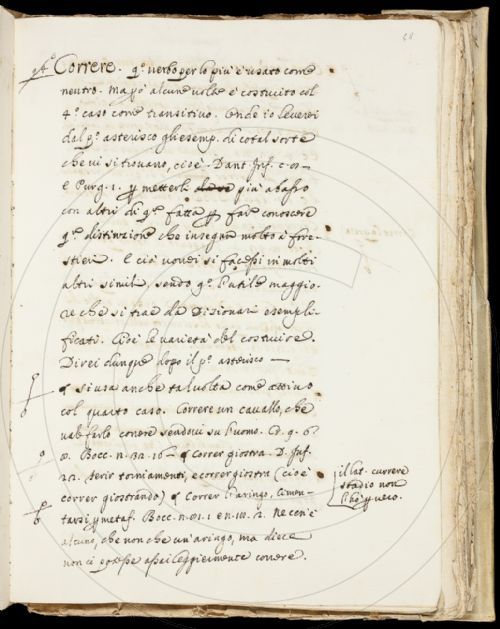 Correre. q.º verbo per lo più è usato come
neutro. Ma può alcune volte è costruito col
4.º caso come transitivo. Onde io leverei
dal p.º asterisco gli esemp. di cotal sorte
che vi si trovano, cioè. Dant. Inf. c.
e Purg. 1. più abasso
con altri di q.ª fatta far conoscere
q.ª distinzione che insegna molto a' fore-
stieri. E ciò vorrei si facessi in molti
altri simili, sendo q.º l'utile maggio-
re che si trae da Dizionari esempli-
ficati. Cioè le varietà del costruire.
Direi dunque dopo il p.º asterisco —
si usa anche talvolta come attivo
col quarto caso. Correre un cavallo, che
vale farlo correre sendovi su l'uomo. 9. 6.
Bocc. n. 32. 16 — Correr giostra. D. Inf.
22. ferir torniamenti, e correr giostra (cioè
correr giostrando) Correr l'aringo, cimen-
tarsi metaf. Bocc. n. 1. e n. 2. Ne cen'è
alcuno, che non che un'aringo, ma diece
non ci potesse assai leggiermente correre.
il lat. currere
stadio non